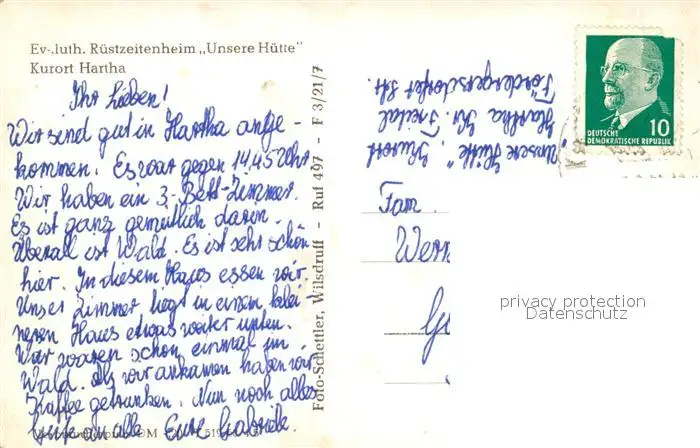 Ev-.luth. Rüstzeitenheim „Unsere Hütte"
Kurort Hartha
Ihr Lieben!
Wir sind gut in Hartha ange-
kommen. Es war gegen 14.45 Uhr
Wir haben ein 3-Bett-Zimmer.
Es ist ganz gemütlich darin.
Überall ist Wald. Es ist sehr schön
hier. In diesem Haus essen wir.
Unser Zimmer liegt in einem klei-
neren Haus etwas weiter unten.
Wir waren schon einmal im
Wald. Als wir ankamen haben wir
Kaffee getrunken. Nun noch alles
Gute an alle Eure Gabriele.
Foto-Schettler, Wilsdruff - Ruf 497 - F 3/21/7
"Unsere Hütte", Kurort
Hartha Kr. Freital
Fördergersdorfer Str.
DEUTSCHE
DEMOKRATISCHE REPUBLIK
10
Fam.
Wern
privacy protection
Datenschutz